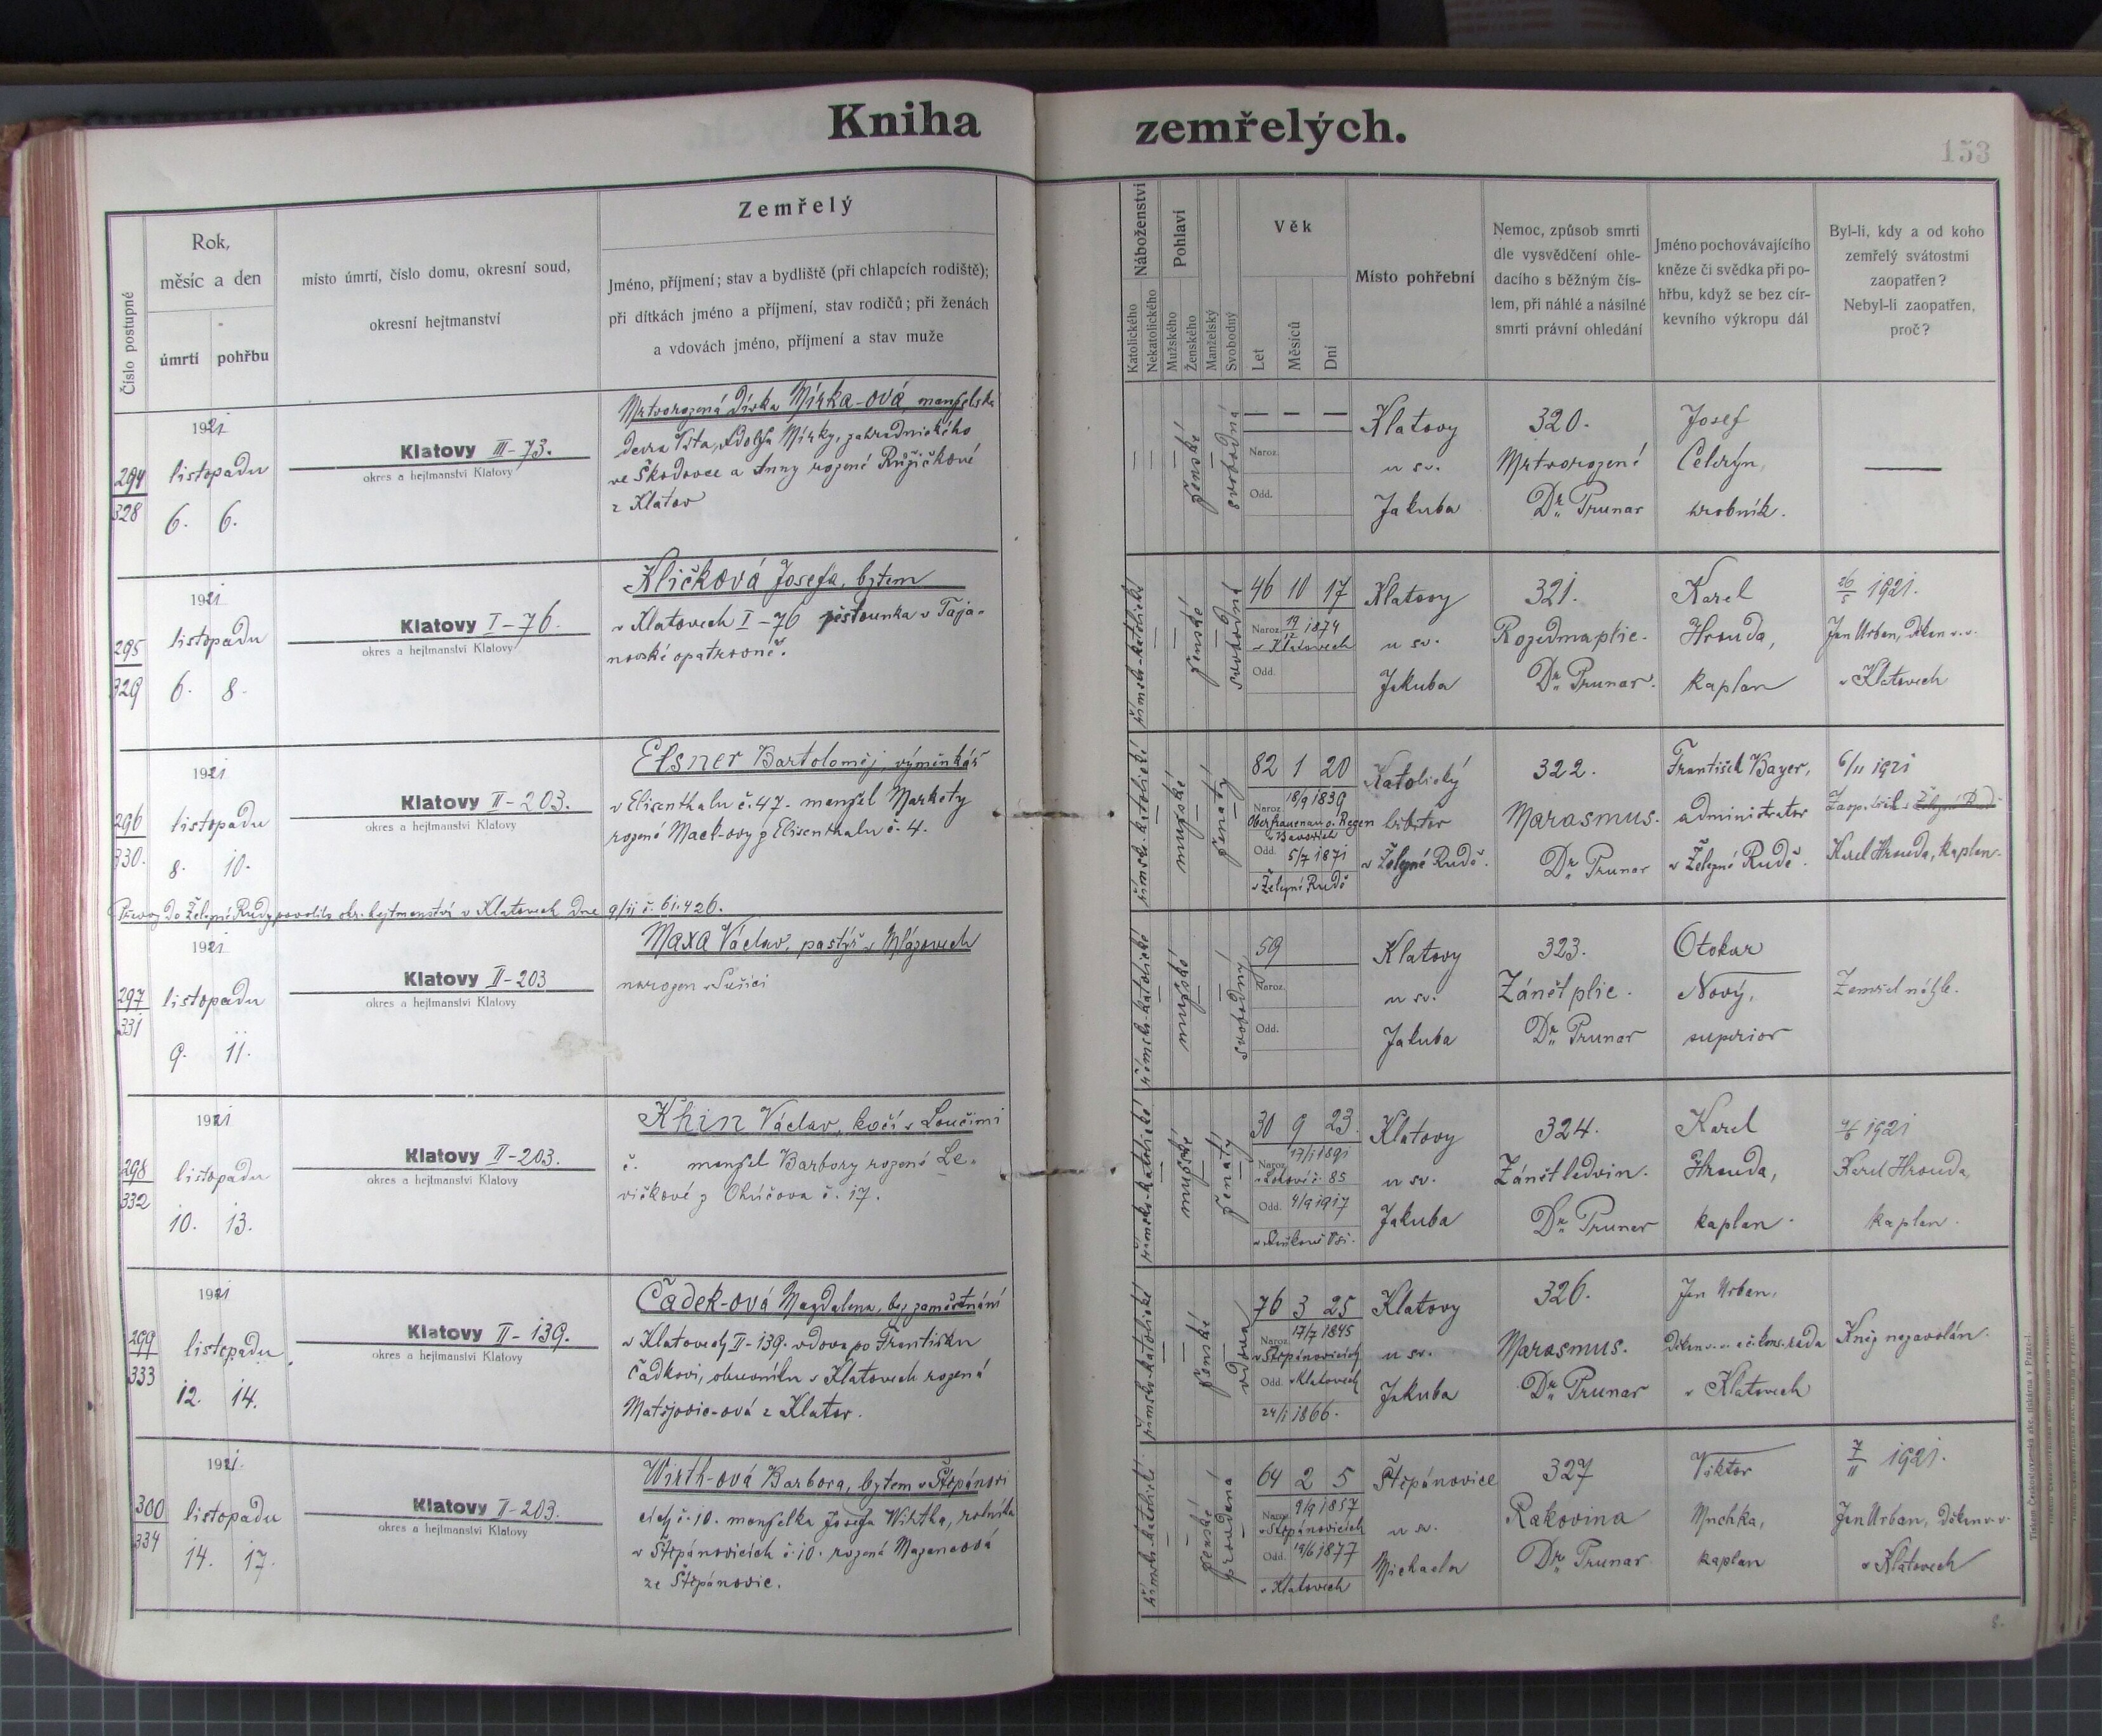 Kniha zemřelých.
153
Číslo postupné
Rok,
měsíc a den
úmrtí pohřbu
místo úmrtí, číslo domu, okresní soud,
okresní hejtmanství
Zemřelý
Jméno, příjmení; stav a bydliště (při chlapcích rodiště);
při dítkách jméno a příjmení, stav rodičů; při ženách
a vdovách jméno, příjmení a stav muže
Náboženství
Katolického
Nekatolického
Pohlaví
Mužského
Ženského
Manželský
Svobodný
Věk
Let
Měsíců
Dní
Místo pohřební
Nemoc, způsob smrti
dle vysvědčení ohle-
dacího s běžným čís-
lem, při náhlé a násilné
smrti právní ohledání
Jméno pochovávajícího
kněze či svědka při po-
hřbu, když se bez cír-
kevního výkropu dál
Byl-li, kdy a od koho
zemřelý svátostmi
zaopatřen?
Nebyl-li zaopatřen,
proč?
294
328
1921
listopadu
6. 6.
Klatovy III-73.
okres a hejtmanství Klatovy
Mrtvorozená dívka Mírka-ová, manželská
dcera Víta, Adolfa Mírky, zahradnického
ve Škodovce a Anny rozené Růžičkové
z Klatov
ženské
svobodná
— — —
Naroz.
Odd.
Klatovy
u sv.
Jakuba
320.
Mrtvorozené
Dr. Prunar
Josef
Celerýn,
hrobník.
—
295
329
1921
listopadu
6. 8.
Klatovy I-76.
okres a hejtmanství Klatovy
Kličková Josefa, bytem
v Klatovech I-76 pěstounka v Taja-
novské opatrovně.
římsko-katolické
ženské
svobodná
46 10 17
Naroz. 19/12 1874
v Klatovech
Odd.
Klatovy
u sv.
Jakuba
321.
Rozedma plic.
Dr. Prunar.
Karel
Hrouda,
kaplan
26/5 1921.
Jan Urban, děkan v.v.
v Klatovech
296
330.
1921
listopadu
8. 10.
Klatovy II-203.
okres a hejtmanství Klatovy
Elsner Bartoloměj, výminkář
v Elisenthalu č. 47. manžel Markety
rozené Mack-ovy z Elisenthalu č. 4.
Převoz do Železné Rudy povolilo okr. hejtmanství v Klatovech dne 9/11 č. 61.426.
římsko-katolické
mužské
ženatý
82 1 20
Naroz. 18/9 1839
Oberfrauenau o. Regen
v Bavorích
Odd. 5/7 1871
v Železné Rudě
Katolický
hřbitov
v Železné Rudě.
322.
Marasmus.
Dr. Prunar
František Bayer,
administrator
v Železné Rudě.
6/11 1921
Zaopatřil v Železné Rudě
Karel Hrouda, kaplan.
297
331
1921
listopadu
9. 11.
Klatovy II-203
okres a hejtmanství Klatovy
Maxa Václav, pastýř v Mlázovech
narozen v Sušici
římsko-katolické
mužské
svobodný
59
Naroz.
Odd.
Klatovy
u sv.
Jakuba
323.
Zánět plic.
Dr. Prunar
Otokar
Nový,
superior
Zemřel náhle.
298
332
1921
listopadu
10. 13.
Klatovy II-203.
okres a hejtmanství Klatovy
Khin Václav, kočí v Loučimi
č. manžel Barbory rozené Le-
vičkové z Okúčova č. 17.
římsko-katolické
mužské
ženatý
30 9 23
Naroz. 17/1 1891
č. 85
Odd. 4/9 1917
Klatovy
u sv.
Jakuba
324.
Zánět ledvin.
Dr. Prunar
Karel
Hrouda,
kaplan.
1921
Karel Hrouda,
kaplan.
299
333
1921
listopadu
12. 14.
Klatovy II-139.
okres a hejtmanství Klatovy
Čadek-ová Magdalena, bez zaměstnání
v Klatovech II-139. vdova po Františku
Čadkovi, obuvníku v Klatovech rozená
Matějovic-ová z Klatov.
římsko-katolické
ženské
vdova
76 3 25
Naroz. 17/7 1845
v Štěpánovicích
Odd. v Klatovech
24/1 1866.
Klatovy
u sv.
Jakuba
326.
Marasmus.
Dr. Prunar
Jan Urban,
děkan v.v. a č. kons. rada
v Klatovech
Kněz nezavolán.
300
334
1921.
listopadu
14. 17.
Klatovy II-203.
okres a hejtmanství Klatovy
Wirth-ová Barbora, bytem v Štěpánovi
cích č. 10. manželka Josefa Wirtha, rolníka
v Štěpánovicích č. 10. rozená Mazancová
ze Štěpánovic.
římsko-katolické
ženské
provdaná
64 2 5
Naroz. 9/9 1857
v Štěpánovicích
Odd. 19/6 1877
v Klatovech
Štěpánovice
u sv.
Michaela
327
Rakovina
Dr. Prunar
Viktor
Muchka,
kaplan
7/11 1921.
Jan Urban, děkan v.v.
v Klatovech
8.